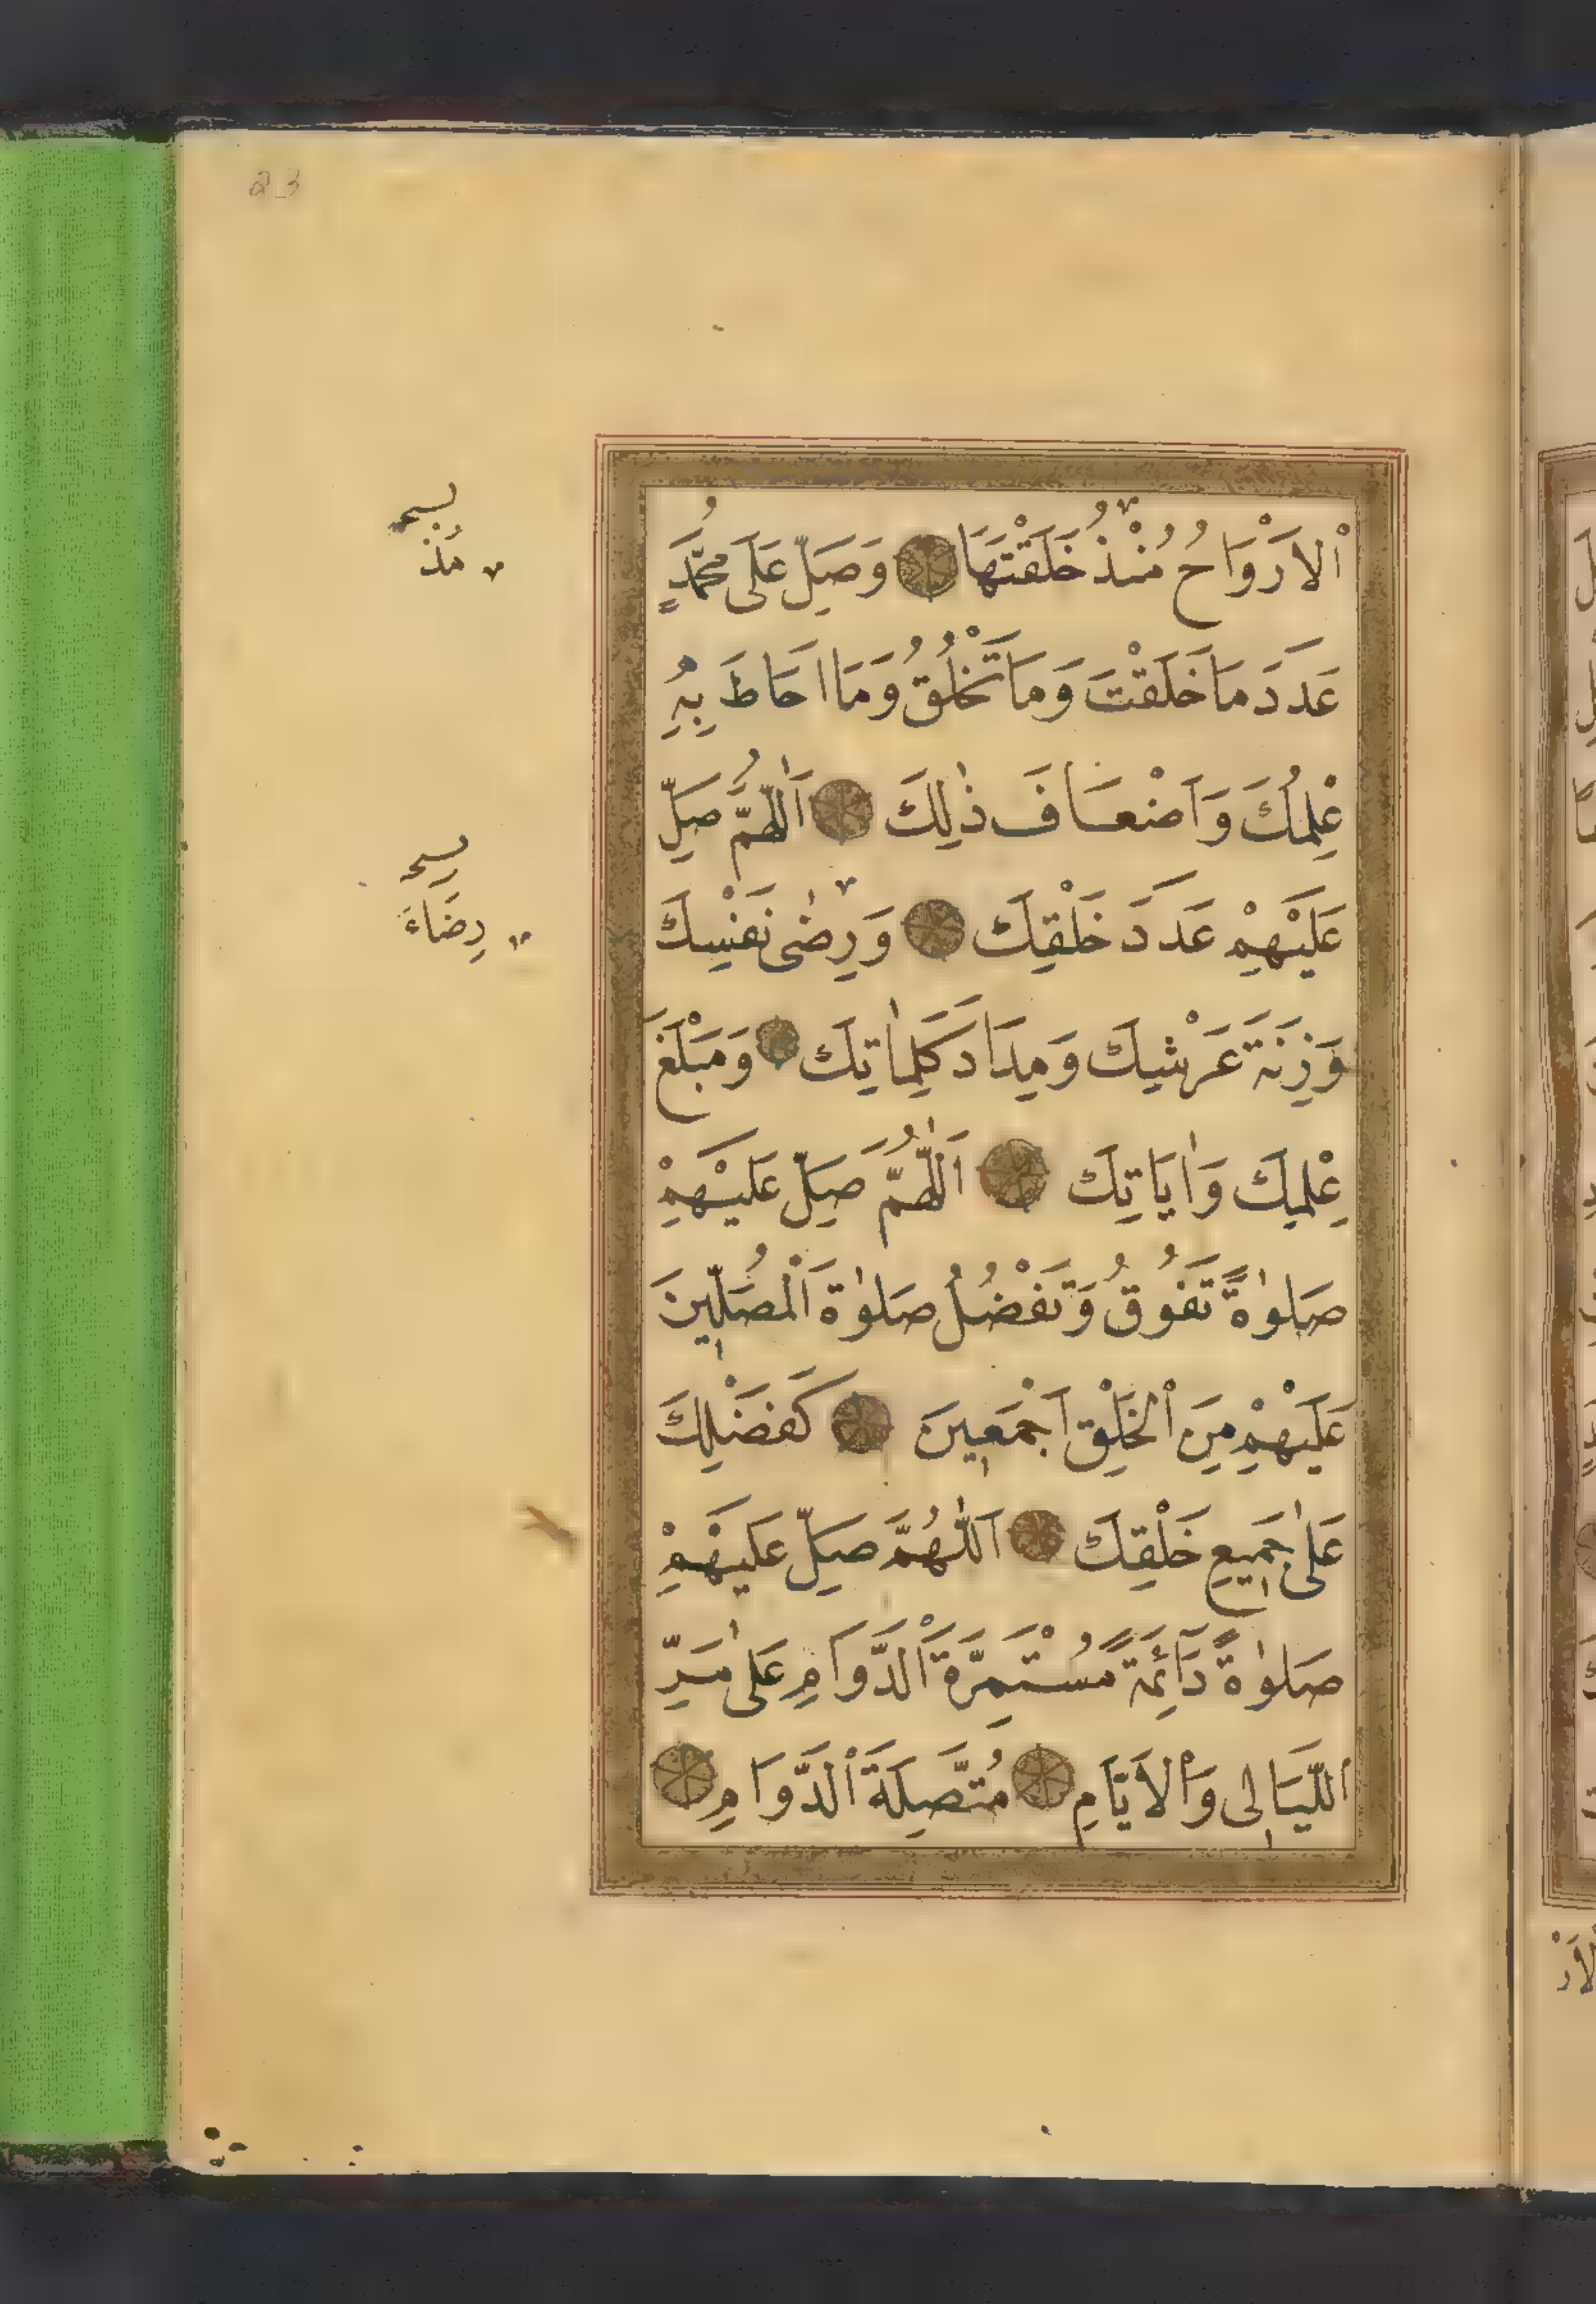 اْلاَرْوَاحُ مُنْذُ خَلَقْتَهَا وَصَلِّ عَلَى مُحَمَّدٍ
عَدَدَ مَا خَلَقْتَ وَمَا تَخْلُقُ وَمَا اَحَاطَ بِهِ
عِلْمُكَ وَاَضْعَافَ ذٰلِكَ اَللّٰهُمَّ صَلِّ
عَلَيْهِمْ عَدَدَ خَلْقِكَ وَرِضٰى نَفْسِكَ
وَزِنَةَ عَرْشِكَ وَمِدَادَ كَلِمَاتِكَ وَمَبْلَغَ
عِلْمِكَ وَاٰيَاتِكَ اَللّٰهُمَّ صَلِّ عَلَيْهِمْ
صَلٰوةً تَفُوقُ وَتَفْضُلُ صَلٰوةَ اْلمُصَلِّينَ
عَلَيْهِمْ مِنَ اْلخَلْقِ اَجْمَعِينَ كَفَضْلِكَ
عَلٰى جَمِيعِ خَلْقِكَ اَللّٰهُمَّ صَلِّ عَلَيْهِمْ
صَلٰوةً دَآئِمَةً مُسْتَمِرَّةَ الدَّوَامِ عَلٰى مَرِّ
اللَّيَالِى وَاْلاَيَّامِ مُتَّصِلَةَ الدَّوَامِ
مُذ
رِضَاءَ
23